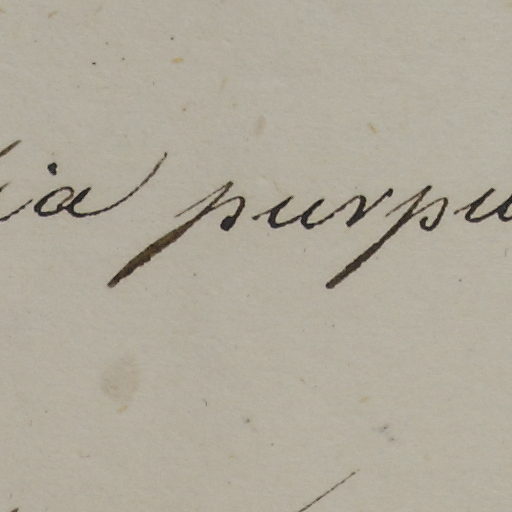 ia purpu